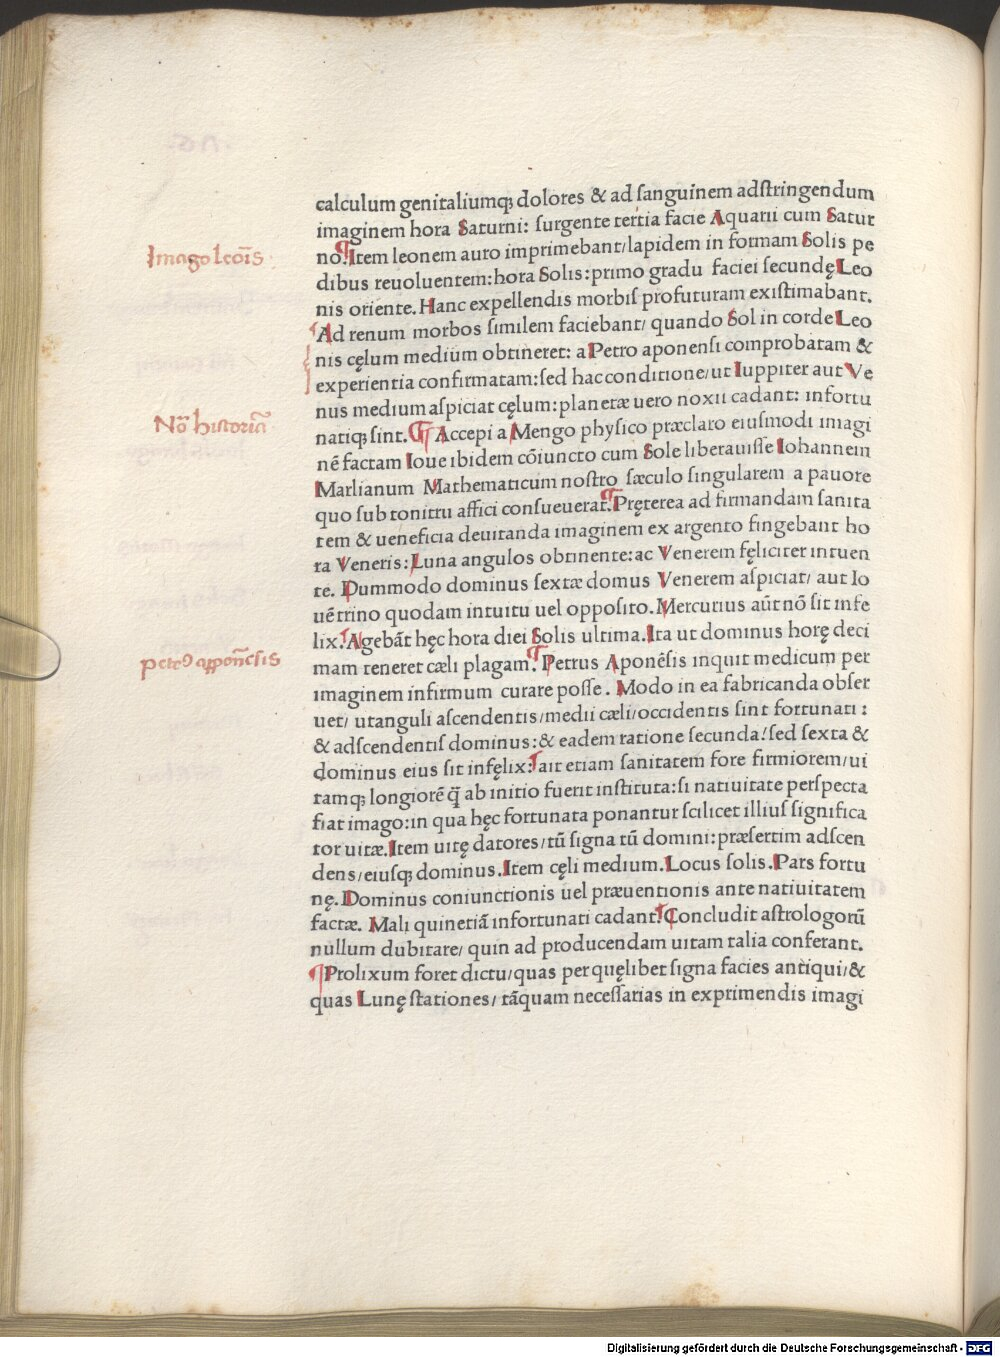 calculum genitaliumq; dolores & ad sanguinem adstringendum
imaginem hora Saturni: surgente tertia facie Aquarii cum Satur
no. ¶ Item leonem auro imprimebant/lapidem in formam Solis pe
Imago leõis
dibus reuoluentem: hora Solis: primo gradu faciei secundę Leo
nis oriente. Hanc expellendis morbis profuturam existimabant.
Ad renum morbos similem faciebant/ quando Sol in corde Leo
nis cęlum medium obtineret: a Petro aponensi comprobatam &
experientia confirmatam: sed hac conditione/ut Iuppiter aut Ve
nus medium aspiciat cęlum: planetæ uero noxii cadant: infortu
Nõ historiã
natiq; sint. ¶ Accepi a Mengo physico præclaro eiusmodi imagi
nẽ factam Ioue ibidem cõiuncto cum Sole liberauisse Iohannem
Marlianum Mathematicum nostro sæculo singularem a pauore
quo sub tonitru affici consueuerat. ¶ Pręterea ad firmandam sanita
tem & ueneficia deuitanda imaginem ex argento fingebant ho
ra Veneris: Luna angulos obtinente: ac Venerem fęliciter intuen
te. Dummodo dominus sextæ domus Venerem aspiciat/ aut Io
uẽ trino quodam intuitu uel opposito. Mercurius aũt nõ sit infe
lix. ¶ Agebãt hęc hora diei Solis ultima. Ita ut dominus horę deci
mam teneret cæli plagam. ¶ Petrus Aponẽsis inquit medicum per
petrꝰ apponẽsis
imaginem infirmum curare posse. Modo in ea fabricanda obser
uet/ ut anguli ascendentis/medii cæli/occidentis sint fortunati:
& adscendentis dominus: & eadem ratione secunda: sed sexta &
dominus eius sit infęlix: ¶ ait etiam sanitatem fore firmiorem/ui
tamq; longiorẽ q̃ ab initio fuerit instituta: si natiuitate perspecta
fiat imago: in qua hęc fortunata ponantur scilicet illius significa
tor uitæ. Item uitę datores/ tũ signa tũ domini: præsertim adscen
dens/eiusq; dominus. Item cęli medium. Locus solis. Pars fortu
nę. Dominus coniunctionis uel præuentionis ante natiuitatem
factæ. Mali quinetiã infortunati cadant. ¶ Concludit astrologorũ
nullum dubitare/ quin ad producendam uitam talia conferant.
¶ Prolixum foret dictu/quas per quęlibet signa facies antiqui/&
quas Lunę stationes/ tãquam necessarias in exprimendis imagi
Digitalisierung gefördert durch die Deutsche Forschungsgemeinschaft - DFG